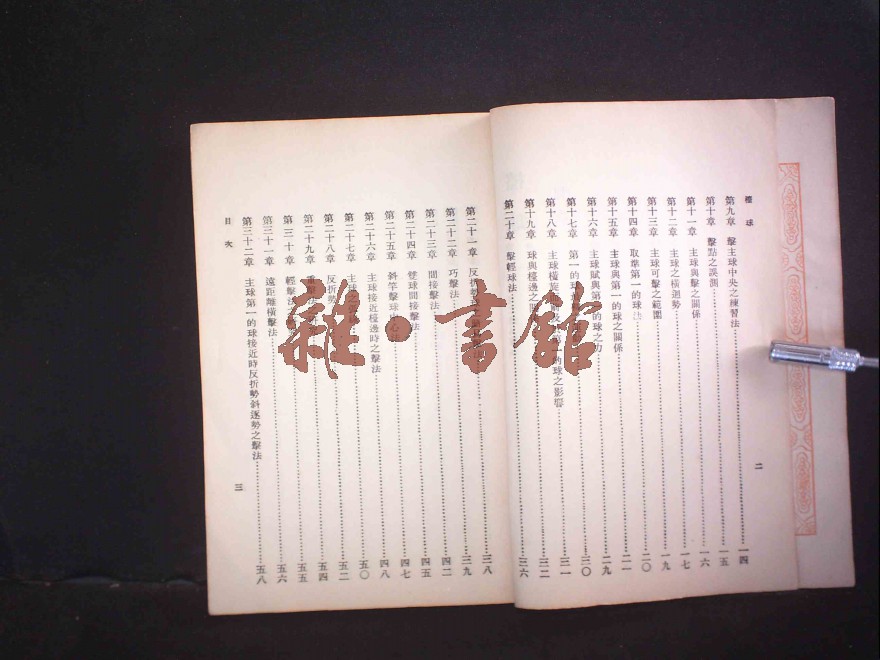 檯球
第九章 擊主球中央之練習法 一四
第十章 擊點之誤測 一五
第十一章 主球與擊之關係 一六
第十二章 主球之橫迴勢 一七
第十三章 主球可擊之範圍 一九
第十四章 取準第一的球法 二〇
第十五章 主球與第一的球之關係 二一
第十六章 主球賦與第一的球之力 一九
第十七章 第一的球 二〇
第十八章 主球橫旋 的球之影響 三一
第十九章 球與檯邊之關 三二
第二十章 擊輕球法 三六
二
第二十一章 反折勢 三八
第二十二章 巧擊法 三九
第二十三章 間接擊法 四二
第二十四章 雙球間接擊法 四五
第二十五章 斜竿擊球 心法 四七
第二十六章 主球接近檯邊時之擊法 四八
第二十七章 主球之 五〇
第二十八章 反折勢 五二
第二十九章 重擊法 五四
第三十章 輕擊法之 五五
第三十一章 遠距離橫擊法 五六
第三十二章 主球第一的球接近時反折勢斜逐勢之擊法 五八
目次
三
雜·書館